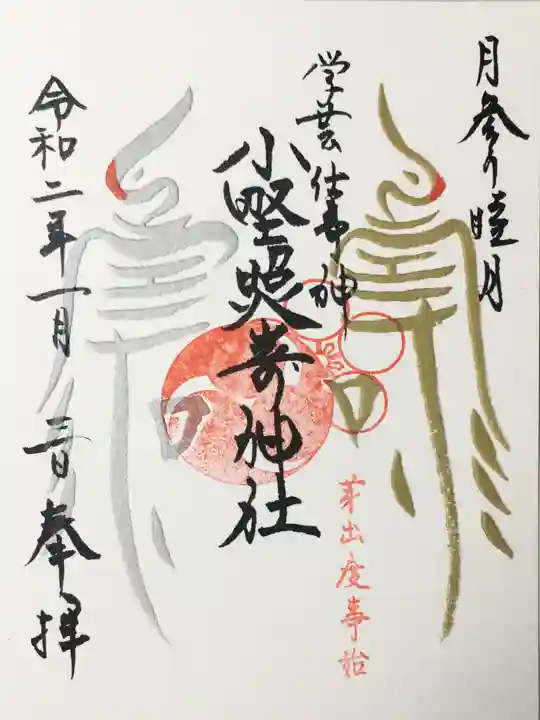 月参り睦月
学芸仕事ノ神
小野照崎神社
芽出度事始
令和二年一月三日奉拝